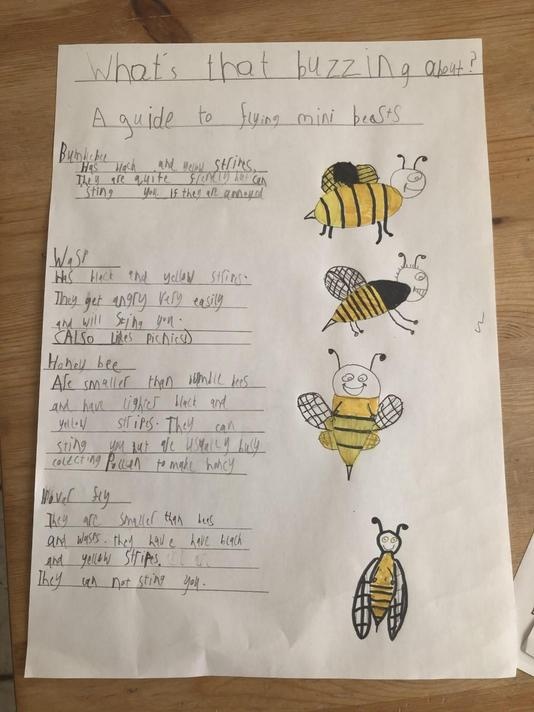 What's that buzzing about?
A guide to flying mini beasts
Bumblebee
Has black and yellow strips.
They are quite friendly but can
sting you if they are annoyed
Wasp
Has black and yellow stripes.
They get angry very easily
and will sting you.
(Also likes picnics)
Honey bee
Are smaller than bumble bees
and have lighter black and
yellow stripes. They can
sting you but are usually busy
colecting Pollan to make honey
Hover fly
They are smaller than bees
and wasps. they have have black
and yellow stripes.
They can not sting you.